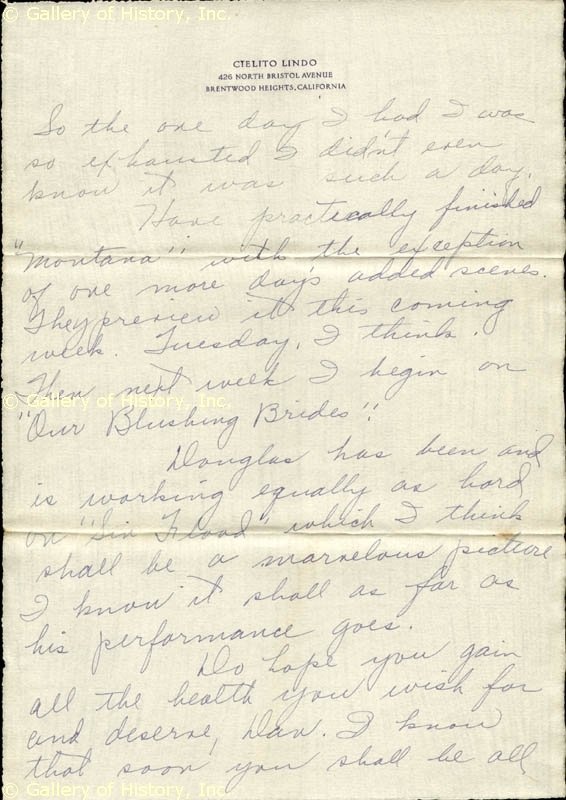 © Gallery of History, Inc.
CIELITO LINDO
426 NORTH BRISTOL AVENUE
BRENTWOOD HEIGHTS, CALIFORNIA
So the one day I had I was
so exhausted I didn't even
know it was such a day.
Have practically finished
"Montana" with the exception
of one more days added scenes.
They preview it this coming
week. Tuesday, I think.
Then next week I begin on
© Gallery of History, Inc.
"Our Blushing Brides".
Douglas has been and
is working equally as hard
on "Sin Flood" which I think
shall be a marvelous picture
I know it shall as far as
his performance goes.
Do hope you gain
all the health you wish for
and deserve, Dan. I know
that soon you shall be all
© Gallery of History, Inc.